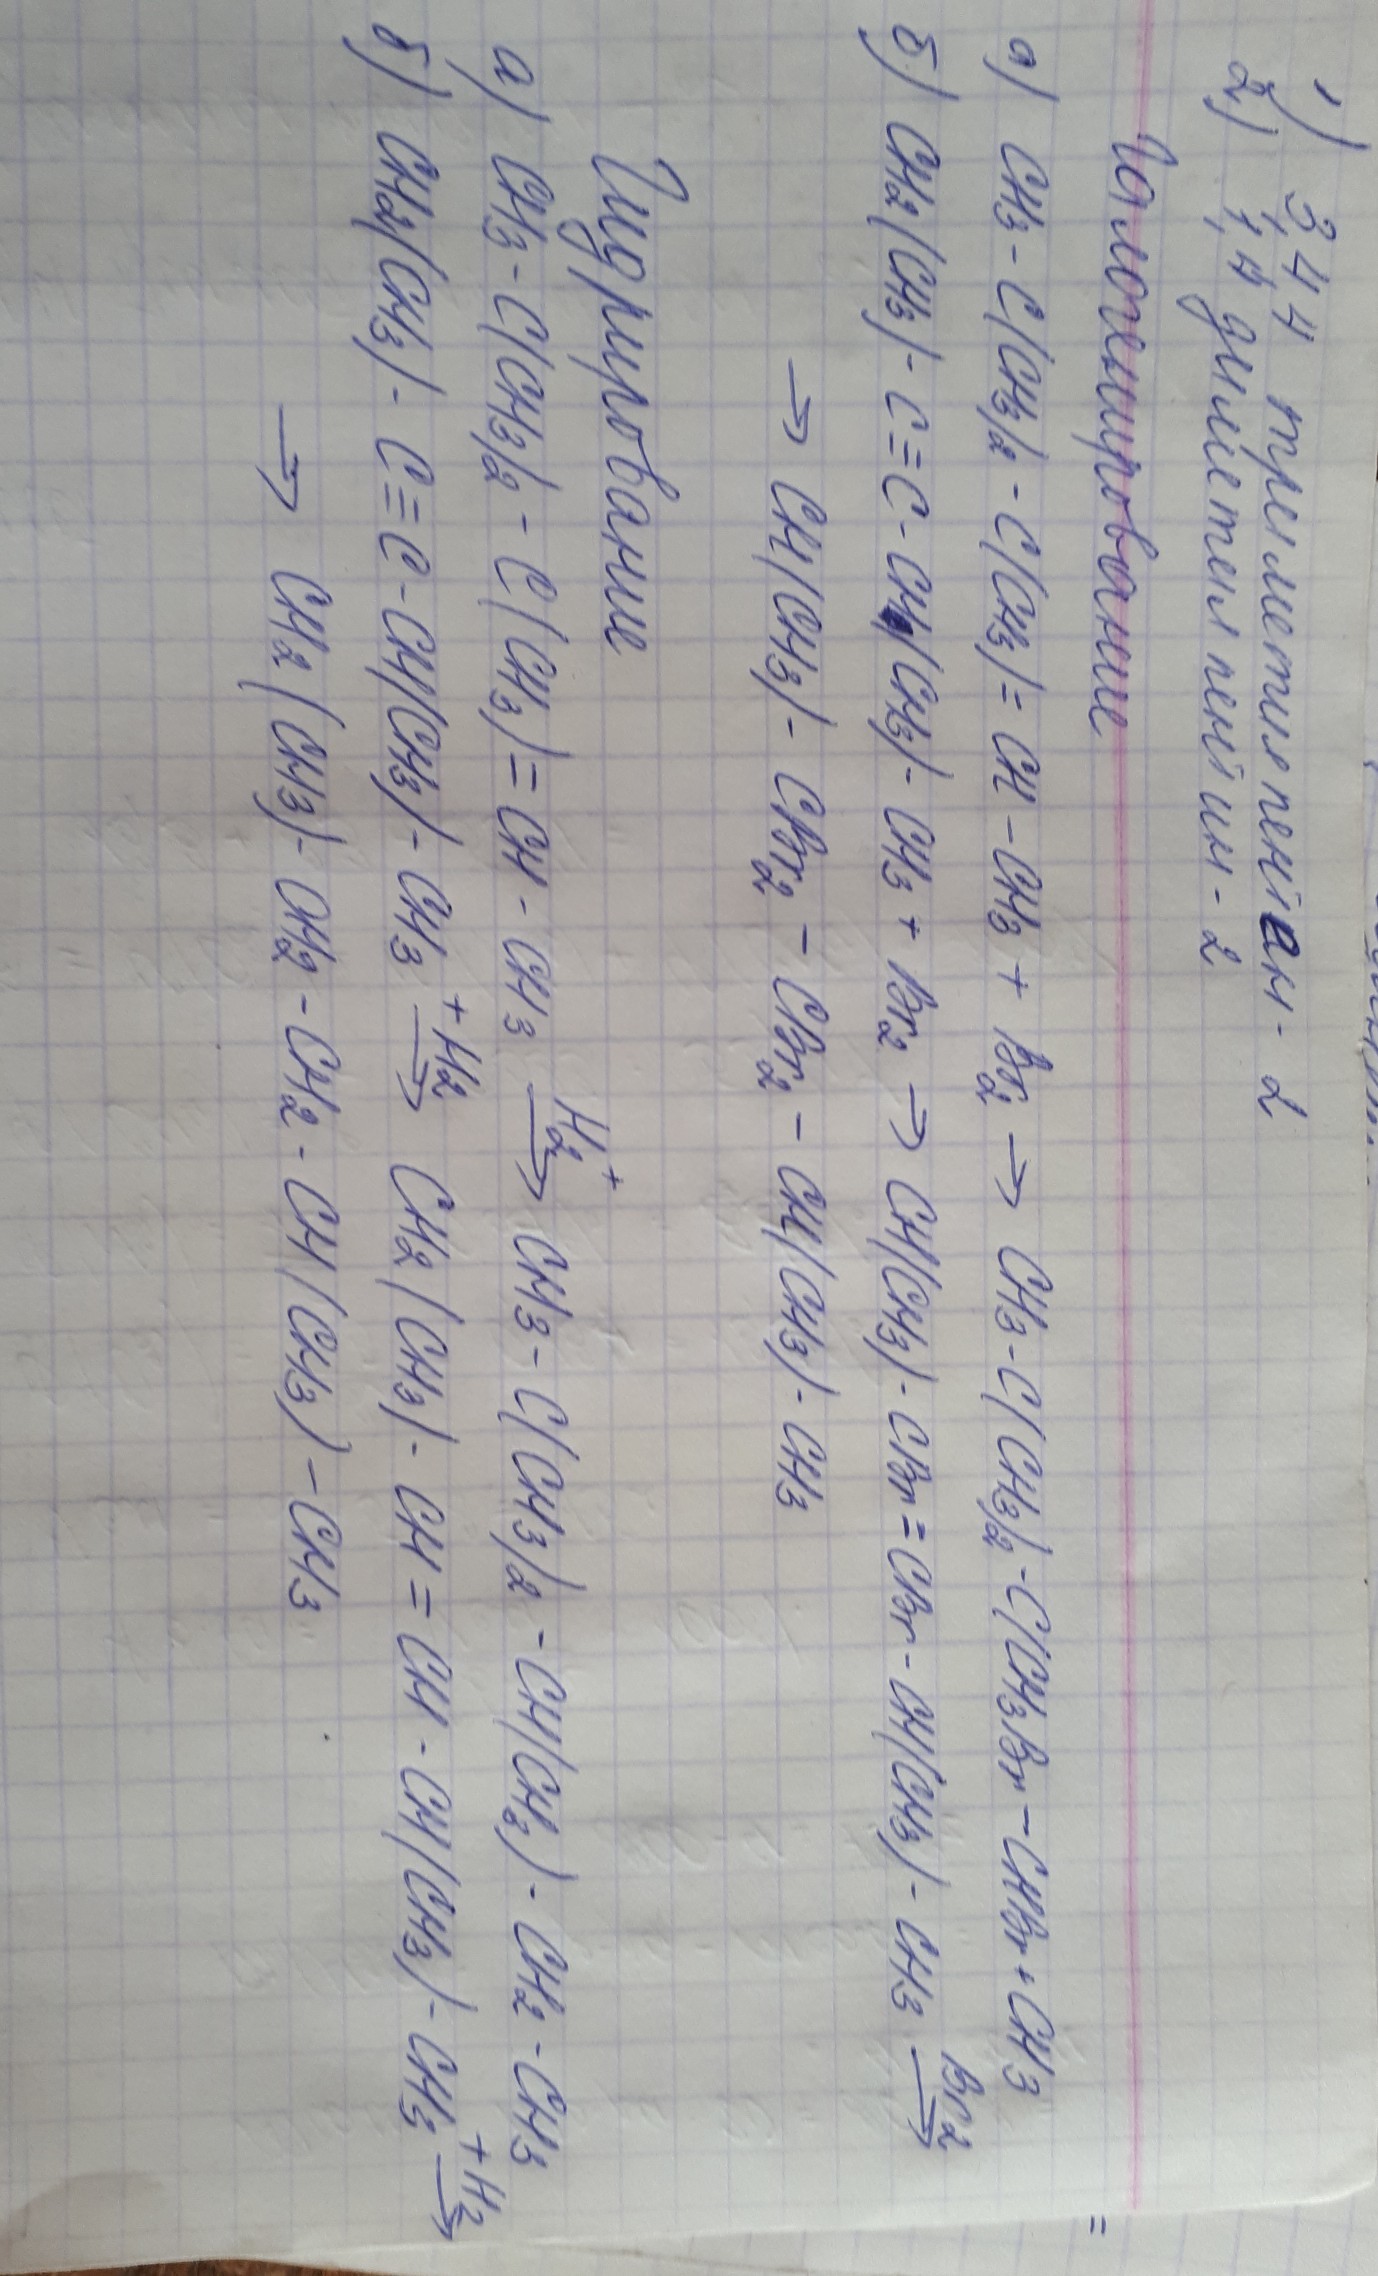 1) 3,4,4 триметилпентан-2
2) 1,4 диметилпентин-2
Галогенирование
а) CH3-C(CH3)2-C(CH3)=CH-CH3 + Br2 → CH3-C(CH3)2-C(CH3Br-CHBr-CH3
б) CH2(CH3)-C≡C-CH(CH3)-CH3 + Br2 → CH(CH3)-CBr=CBr-CH(CH3)-CH3 Br2→
→ CH(CH3)-CBr2-CBr2-CH(CH3)-CH3
Гидрирование
а) CH3-C(CH3)2-C(CH3)=CH-CH3 H2+→ CH3-C(CH3)2-CH(CH3)-CH2-CH3
б) CH2(CH3)-C≡C-CH(CH3)-CH3 +H2→ CH2(CH3)-CH=CH-CH(CH3)-CH3 +H2→
→ CH2(CH3)-CH2-CH2-CH(CH3)-CH3